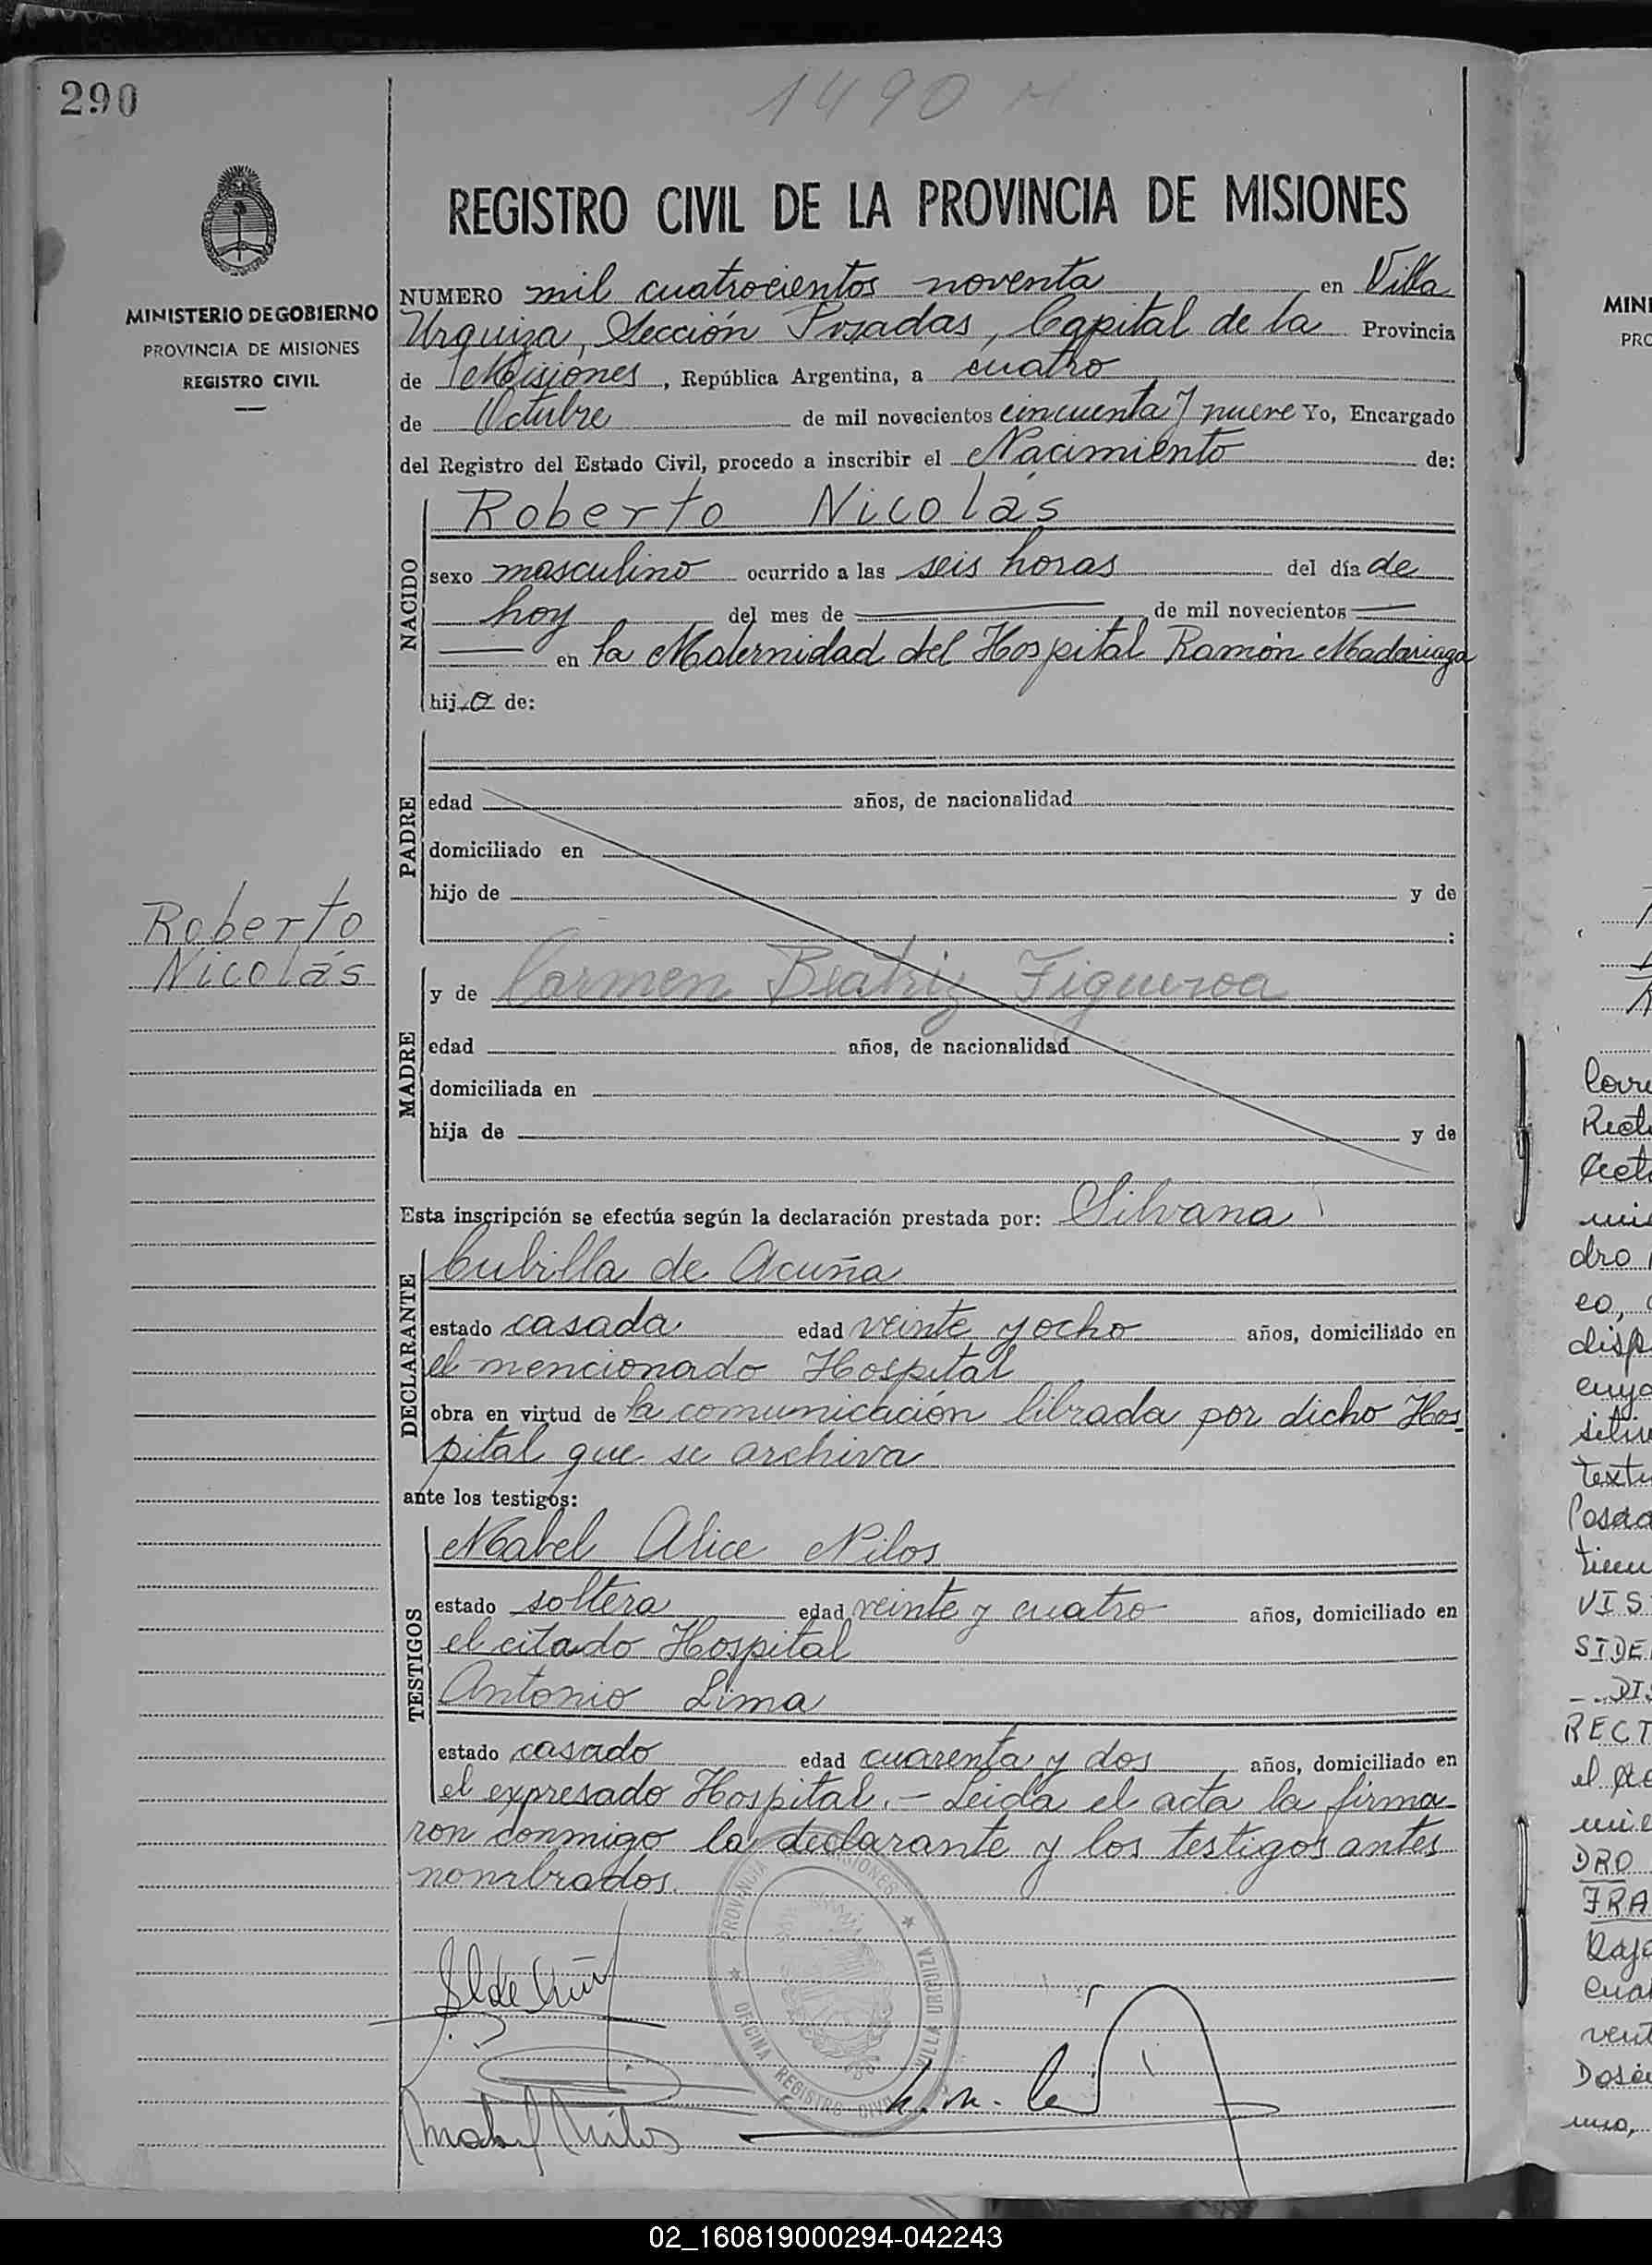 290
1490 M
MINISTERIO DE GOBIERNO
PROVINCIA DE MISIONES
REGISTRO CIVIL
REGISTRO CIVIL DE LA PROVINCIA DE MISIONES
NUMERO mil cuatrocientos noventa en Villa
Urquiza, Sección Posadas, Capital de la Provincia
de Misiones, República Argentina, a cuatro
de Octubre de mil novecientos cincuenta y nueve Yo, Encargado
del Registro del Estado Civil, procedo a inscribir el Nacimiento de:
NACIDO
Roberto Nicolás
sexo masculino ocurrido a las seis horas del día de
hoy del mes de de mil novecientos
en la Maternidad del Hospital Ramón Madariaga
hijo de:
PADRE
edad años, de nacionalidad
domiciliado en
hijo de y de
:
Roberto
Nicolás
MADRE
y de Carmen Beatriz Figueroa
edad años, de nacionalidad
domiciliada en
hija de y de
Esta inscripción se efectúa según la declaración prestada por: Silvana
DECLARANTE
Cubilla de Acuña
estado casada edad veinte y ocho años, domiciliado en
el mencionado Hospital
obra en virtud de la comunicación librada por dicho Hos
pital que se archiva
ante los testigos:
TESTIGOS
Mabel Alice Nilos
estado soltera edad veinte y cuatro años, domiciliado en
el citado Hospital
Antonio Lima
estado casado edad cuarenta y dos años, domiciliado en
el expresado Hospital.- Leida el acta la firma
ron conmigo la declarante y los testigos antes
nombrados.
PROVINCIA MISIONES
OFICINA REGISTRO CIVIL VILLA URQUIZA
Mabel Nilos
MINI
PRO
Rect
dro
eo,
disp
cuya
Posa
VIS
SIDE
DIS
RECT
el
DRO
FRA
cua
02_160819000294-042243